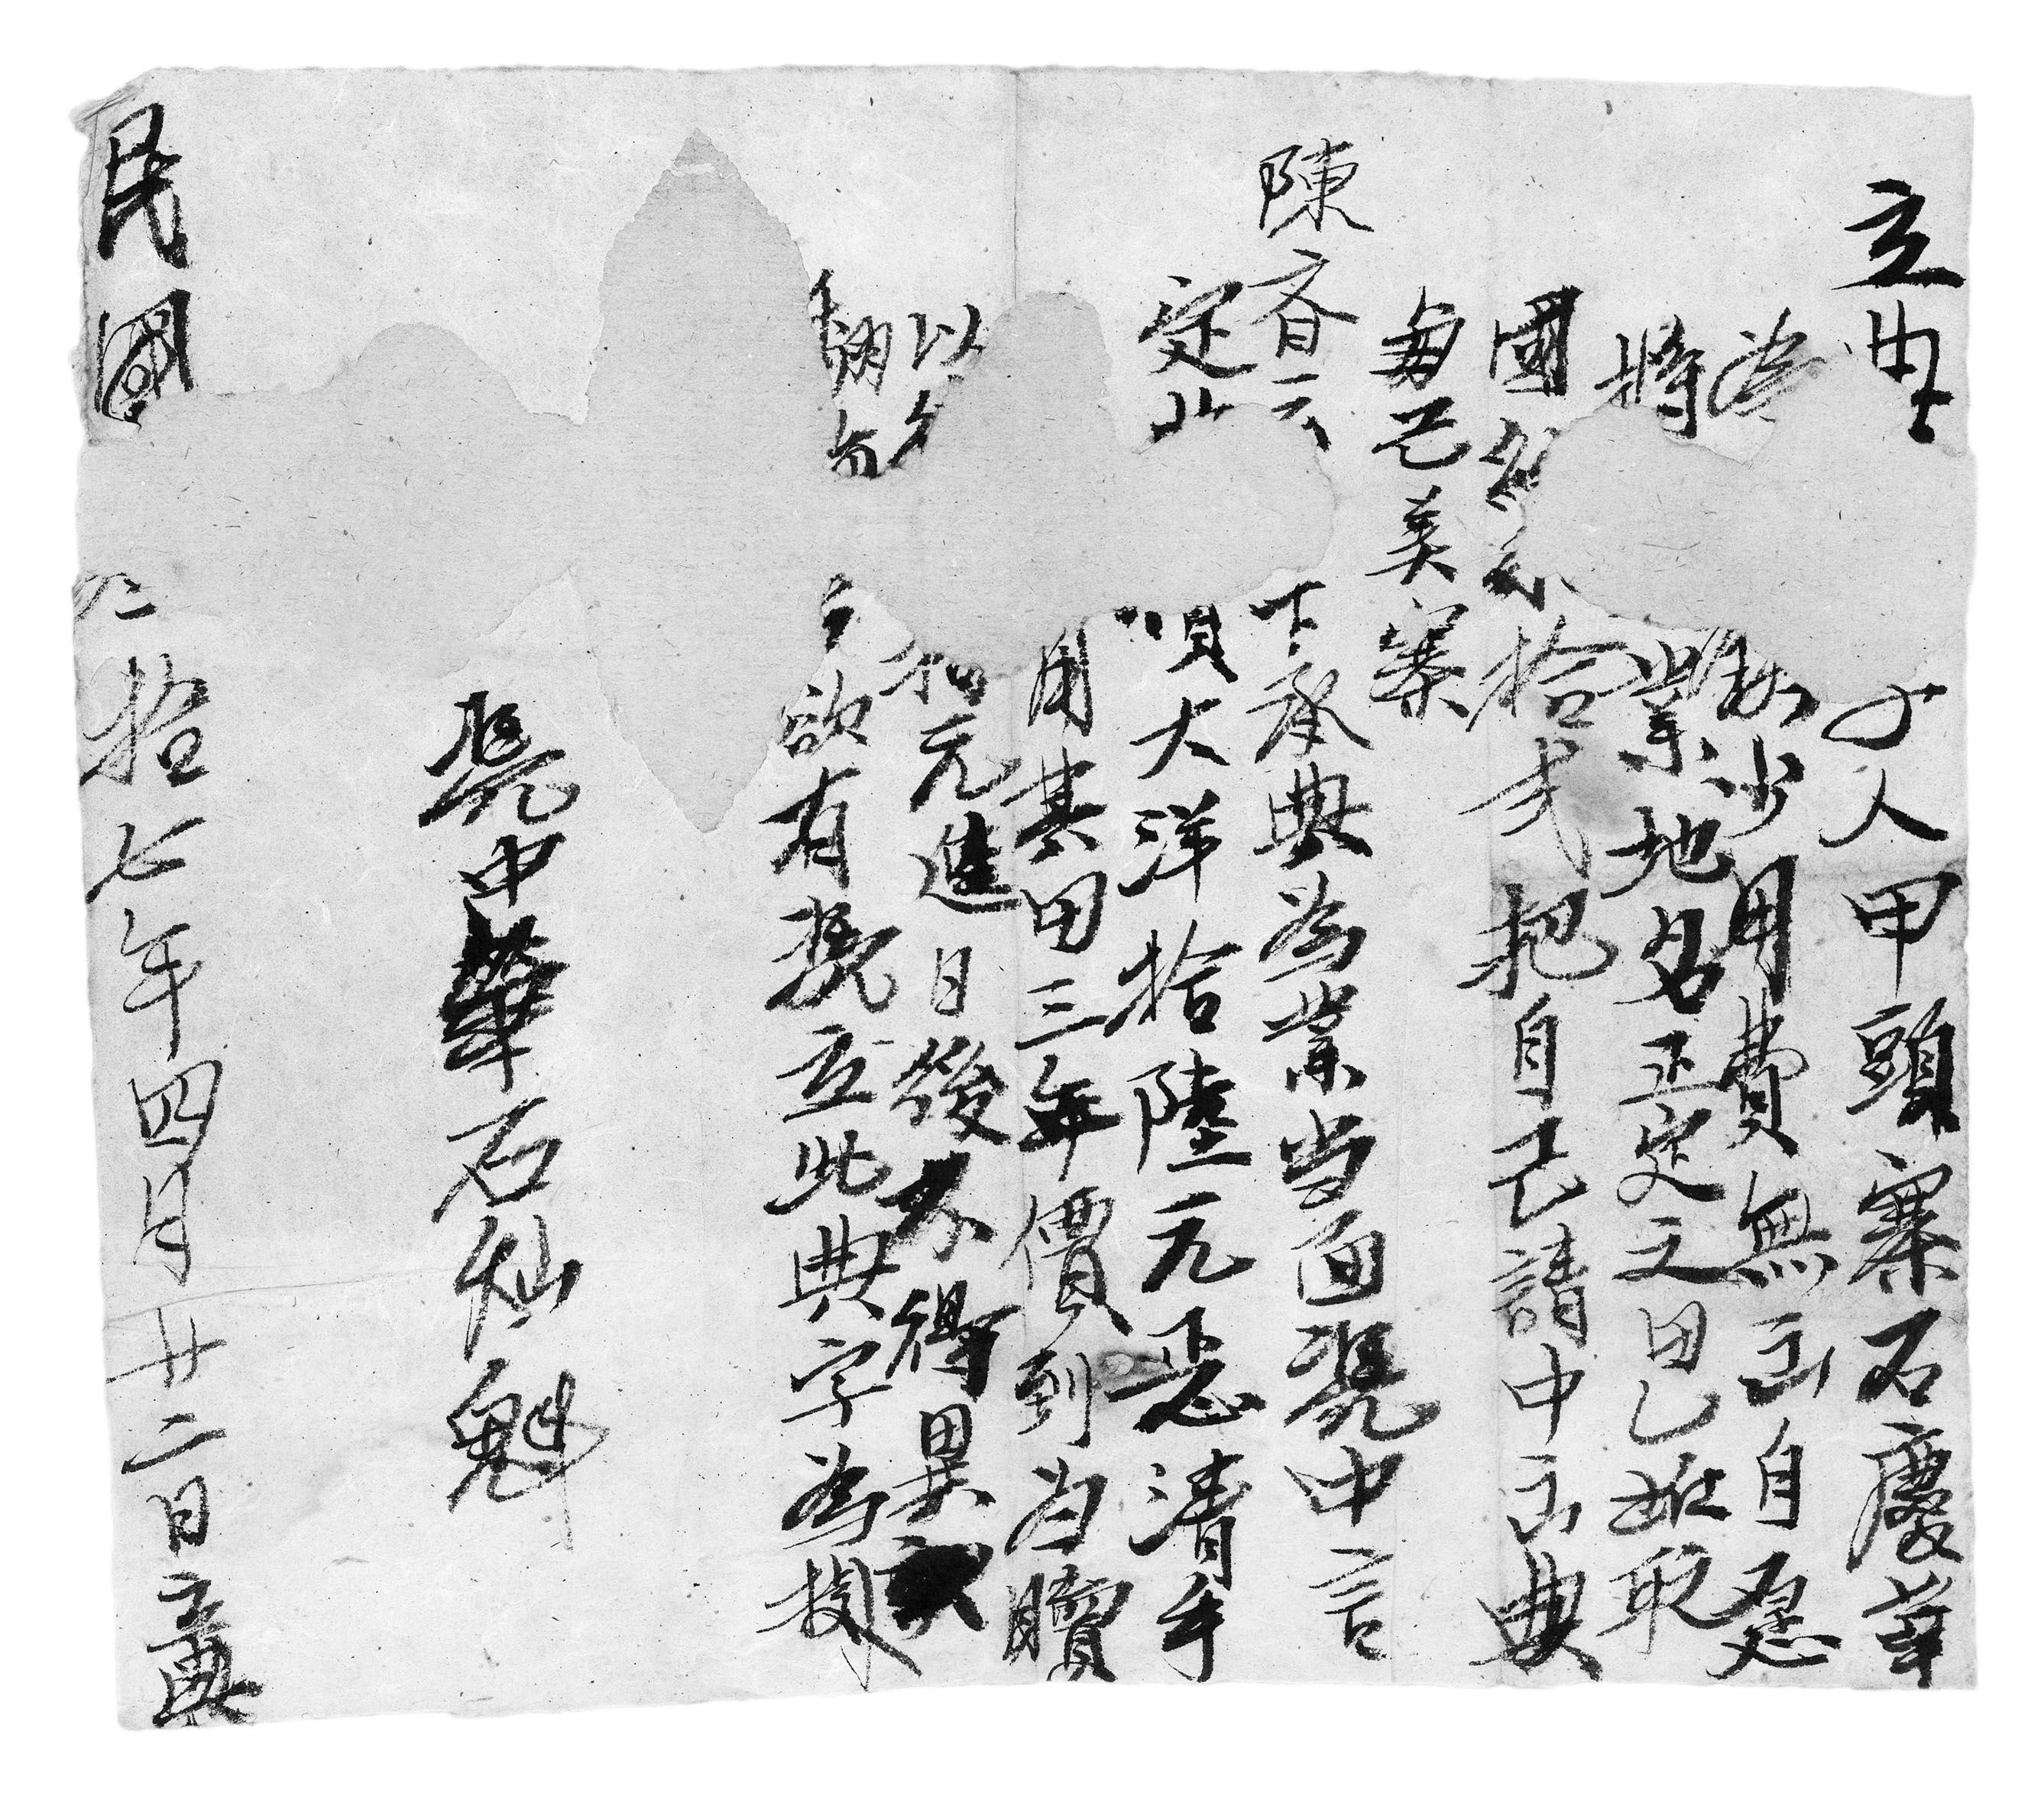 立典 人甲頭寨石慶華
缺少用費無出自愿
將 業地名正定之田乙坵取
國 拾弍把自己請中出典
每己美寨
陳齊云 承典為業当面凭中言
定 大洋拾陸元悉清手
用其田三年價到归贖
以 元進日後不得異言
欲有凭立此典字為據
凭中 石仙魁
民國二拾七年四月廿二日立典